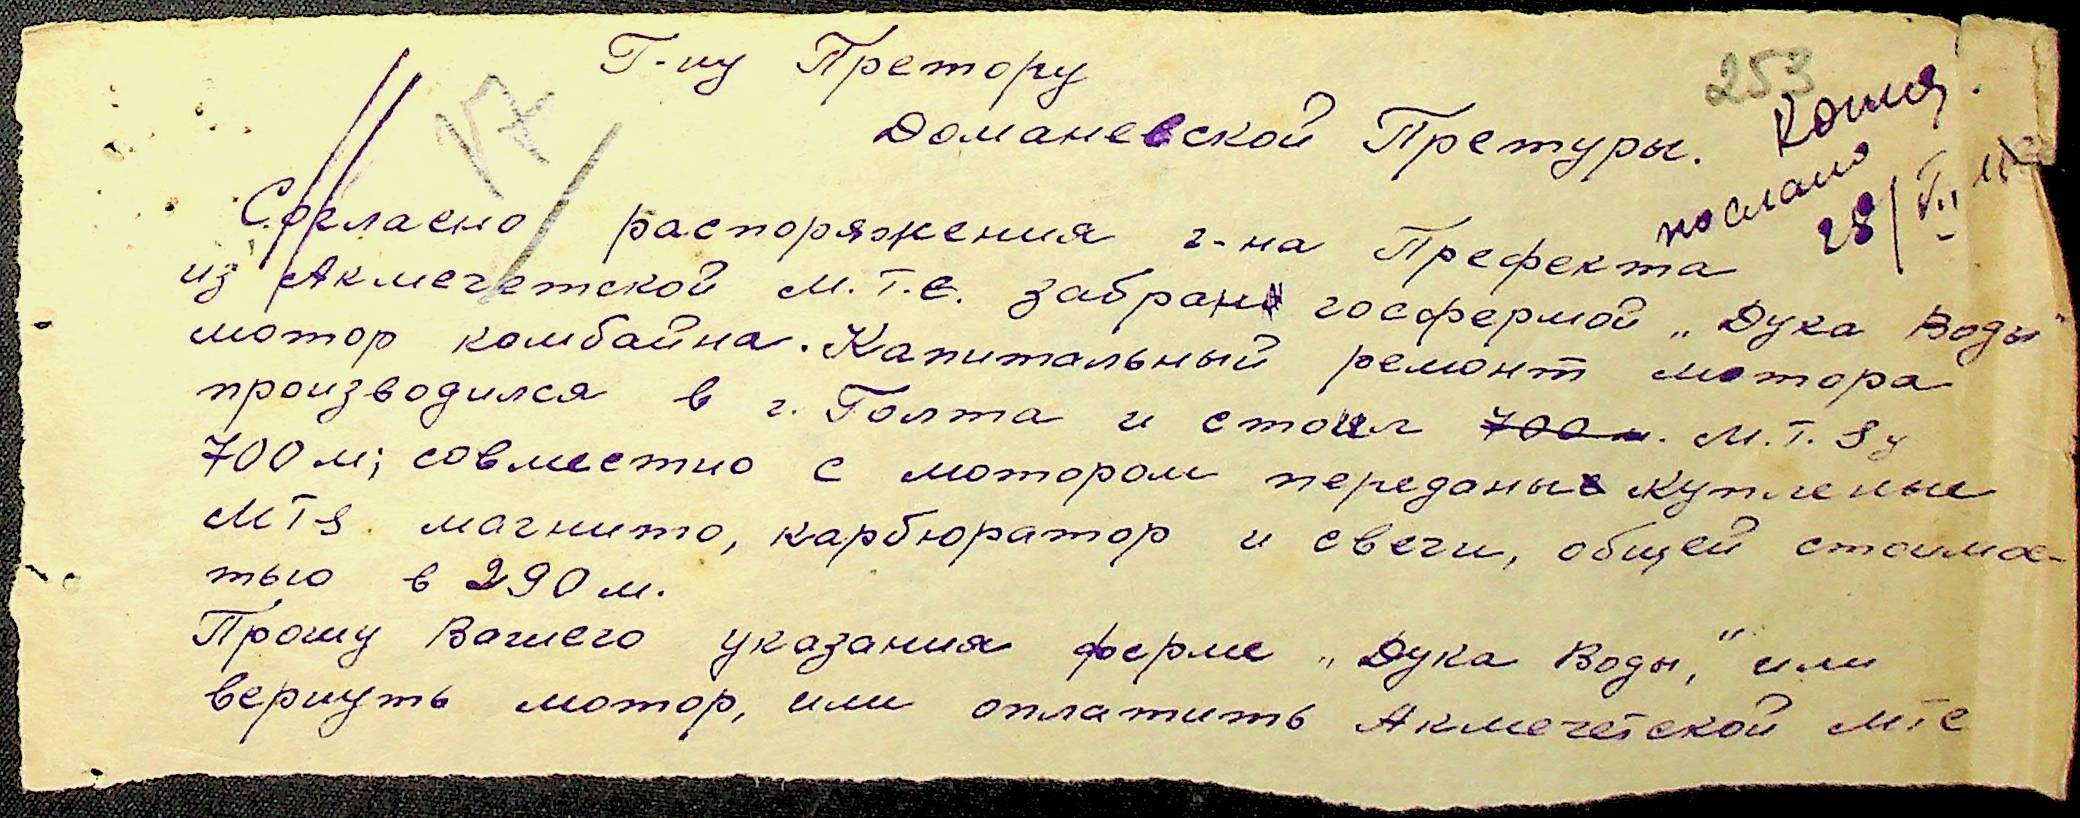 Г-ну Претору
253
Доманевской Претуры.
Копия
послана
28/VII
17
Согласно распоряжения г-на Префекта
из Акмечетской М.Т.С. забран госфермой „Дука Воды"
мотор комбайна. Капитальный ремонт мотора
производился в г. Голта и стоил 700 м. М.Т.Sу
700 м; совместно с мотором переданы купленые
МТS магнито, карбюратор и свечи, общей стоимос-
тью в 290 м.
Прошу Вашего указания ферме „Дука Воды," или
вернуть мотор, или оплатить Акмечетской МТС